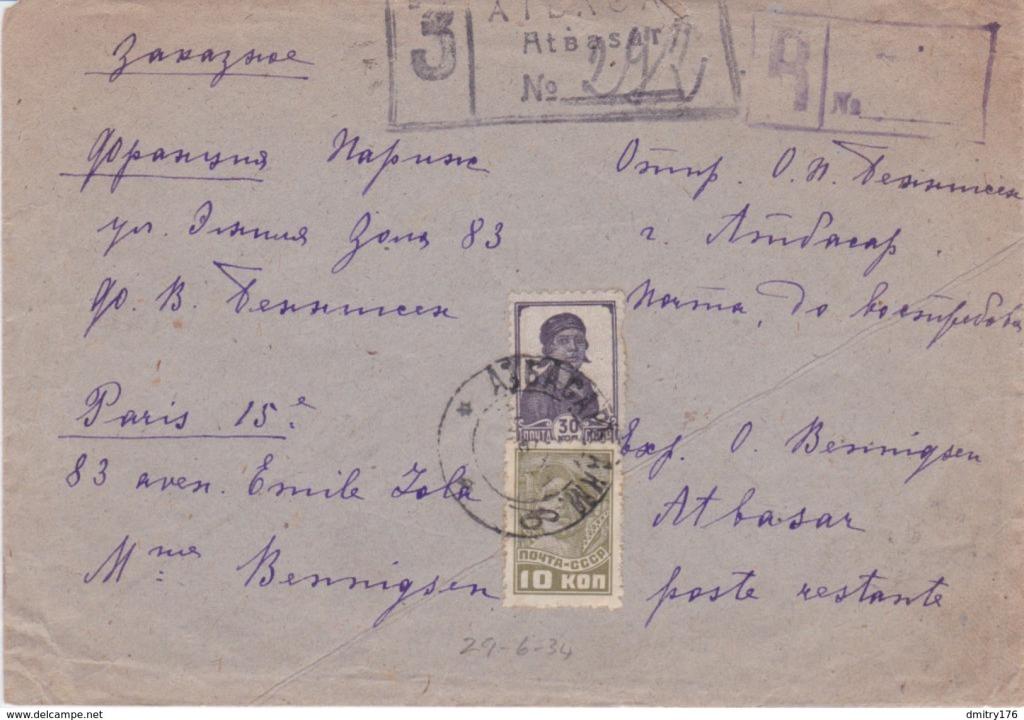 Заказное
3
АТБАСАР
Atbasar
№ 292
R
№
Франция Париж
ул. Эмиля Зола 83
Ф. В. Беннигсен
Отпр. О. П. Беннигсен
г. Атбасар
Почта, до востребов
Paris 15e
83 aven. Emile Zola
Mme Bennigsen
Exp. O. Bennigsen
Atbasar
poste restante
ПОЧТА 30 КОП.
ПОЧТА-СССР
10 КОП
29-6-34
www.delcampe.net
dmitry176